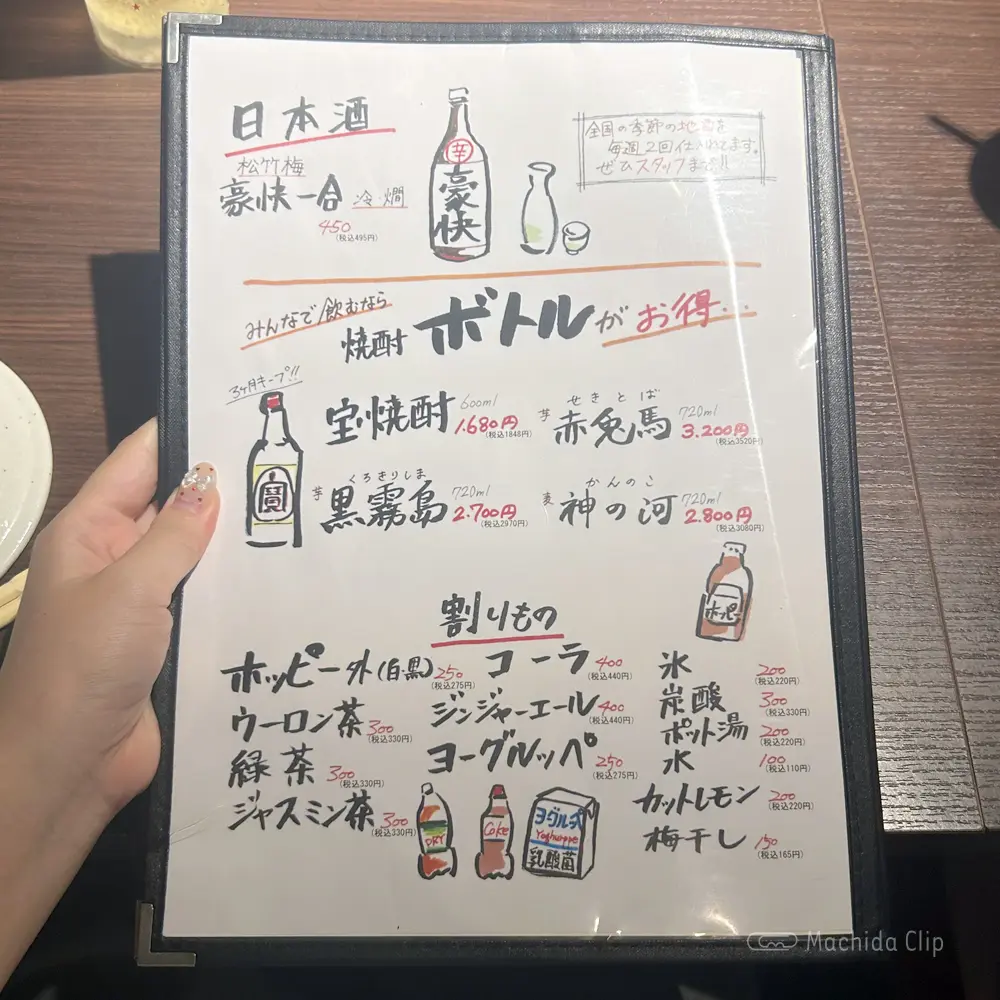 日本酒
松竹梅
豪快一合 冷・燗
450
(税込495円)
辛
豪快
全国の季節の地酒を
毎週2回仕入れてます。
ぜひスタッフまで!!
みんなで飲むなら
焼酎 ボトルがお得...
3ヶ月キープ!!
寶
宝焼酎 600ml
1.680円
(税込1848円)
せきとば
芋 赤兎馬 720ml
3.200円
(税込3520円)
くろきりしま
芋 黒霧島 720ml
2.700円
(税込2970円)
かんのこ
麦 神の河 720ml
2.800円
(税込3080円)
ホッピー
割りもの
ホッピー外(白・黒) 250
(税込275円)
ウーロン茶 300
(税込330円)
緑茶 300
(税込330円)
ジャスミン茶 300
(税込330円)
コーラ 400
(税込440円)
ジンジャーエール 400
(税込440円)
ヨーグルッペ 250
(税込275円)
DRY
Coke
ヨグルッペ
Yoghurppe
乳酸菌
氷 200
(税込220円)
炭酸 300
(税込330円)
ポット湯 200
(税込220円)
水 100
(税込110円)
カットレモン 200
(税込220円)
梅干し 150
(税込165円)
Machida Clip